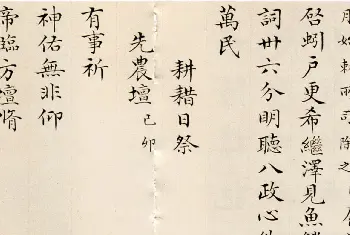 啓蚓戶更希繼澤見魚
詞卅六分明聽八政心
萬民
耕耤日祭
先農壇己卯
有事祈
神佑無非仰
帝臨方壇